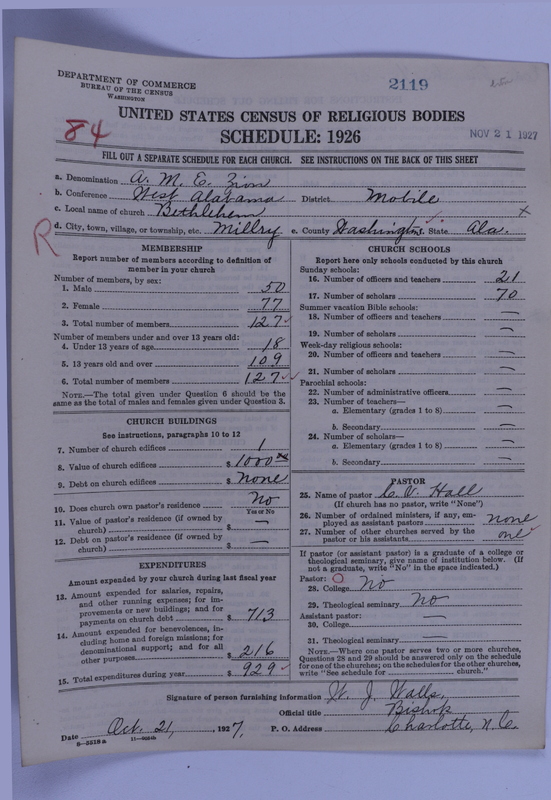 DEPARTMENT OF COMMERCE
BUREAU OF THE CENSUS
WASHINGTON
2119
84
UNITED STATES CENSUS OF RELIGIOUS BODIES
SCHEDULE: 1926
NOV 21 1927
FILL OUT A SEPARATE SCHEDULE FOR EACH CHURCH. SEE INSTRUCTIONS ON THE BACK OF THIS SHEET
a. Denomination A. M. E. Zion
b. Conference West Alabama District Mobile
c. Local name of church Bethlehem x
R d. City, town, village, or township, etc. Millry e. County Washington State Ala.
MEMBERSHIP
Report number of members according to definition of
member in your church
Number of members, by sex:
1. Male 50
2. Female 77
3. Total number of members 127 ✓
Number of members under and over 13 years old:
4. Under 13 years of age 18
5. 13 years old and over 109
6. Total number of members 127 ✓
NOTE.—The total given under Question 6 should be the
same as the total of males and females given under Question 3.
CHURCH BUILDINGS
See instructions, paragraphs 10 to 12
7. Number of church edifices 1
8. Value of church edifices $ 1000
9. Debt on church edifices $ none
10. Does church own pastor's residence No
Yes or No
11. Value of pastor's residence (if owned by
church) $ —
12. Debt on pastor's residence (if owned by
church) $ —
EXPENDITURES
Amount expended by your church during last fiscal year
13. Amount expended for salaries, repairs,
and other running expenses; for im-
provements or new buildings; and for
payments on church debt $ 713
14. Amount expended for benevolences, in-
cluding home and foreign missions; for
denominational support; and for all
other purposes $ 216
15. Total expenditures during year $ 929 ✓
CHURCH SCHOOLS
Report here only schools conducted by this church
Sunday schools:
16. Number of officers and teachers 21
17. Number of scholars 70
Summer vacation Bible schools:
18. Number of officers and teachers —
19. Number of scholars —
Week-day religious schools:
20. Number of officers and teachers —
21. Number of scholars —
Parochial schools:
22. Number of administrative officers —
23. Number of teachers—
a. Elementary (grades 1 to 8) —
b. Secondary —
24. Number of scholars—
a. Elementary (grades 1 to 8) —
b. Secondary —
PASTOR
25. Name of pastor C. V. Hall
(If church has no pastor, write "None")
26. Number of ordained ministers, if any, em-
ployed as assistant pastors none
27. Number of other churches served by the
pastor or his assistants one
If pastor (or assistant pastor) is a graduate of a college or
theological seminary, give name of institution below. (If
not a graduate, write "No" in the space indicated.)
Pastor: O
28. College No
29. Theological seminary No
Assistant pastor: —
30. College
31. Theological seminary —
NOTE.—Where one pastor serves two or more churches,
Questions 28 and 29 should be answered only on the schedule
for one of the churches; on the schedules for the other churches,
write "See schedule for church."
Signature of person furnishing information W. J. Walls,
Official title Bishop
Date Oct. 21, 1927. P. O. Address Charlotte, N. C.
8—5518 a